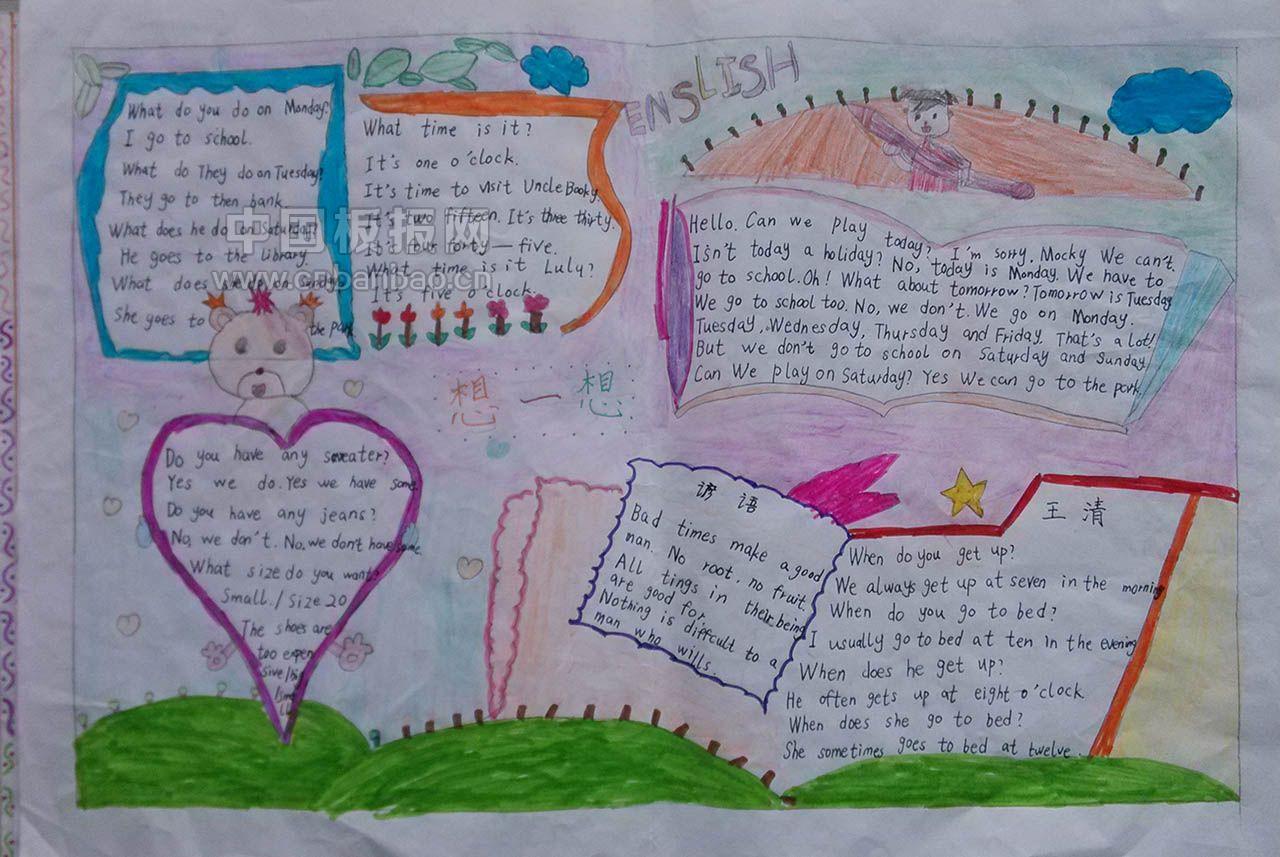 ENSLISH
What do you do on Monday?
I go to school.
What do They do on Tuesday?
They go to then bank.
What does he do on Saturday?
He goes to the library.
What does she do on Sunday
She goes to the park
What time is it?
It's one o'clock.
It's time to visit Uncle Booky.
It's two fifteen. It's three thirty.
It's four forty—five.
What time is it Luly?
It's five o'clock.
中国板报网
www.cnbanbao.cn
Hello. Can we play today? I'm sorry, Mocky We can't.
Isn't today a holiday? No, today is Monday. We have to
go to school. Oh! What about tomorrow? Tomorrow is Tuesday
We go to school too. No, we don't. We go on Monday.
Tuesday, Wednesday, Thursday and Friday. That's a lot!
But we don't go to school on Saturday and Sunday.
Can We play on Saturday? Yes We can go to the park.
想一想
Do you have any sweater?
Yes we do. Yes we have some.
Do you have any jeans?
No, we don't. No, we don't have some.
What size do you want?
Small. / Size 20
The shoes are
too expen
sive / big
谚语
Bad times make a good
man. No root, no fruit.
All tings in their being
are good for.
Nothing is diffcult to a
man who wills.
王清
When do you get up?
We always get up at seven in the morning
When do you go to bed?
I usually go to bed at ten in the evening
When does he get up?
He often gets up at eight o'clock.
When does she go to bed?
She sometimes goes to bed at twelve.